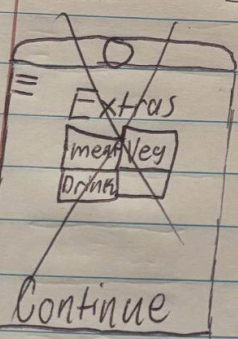 Extras
meat Veg
Drink
Continue